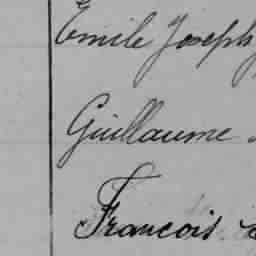 Emile Joseph
Guillaume
Francois